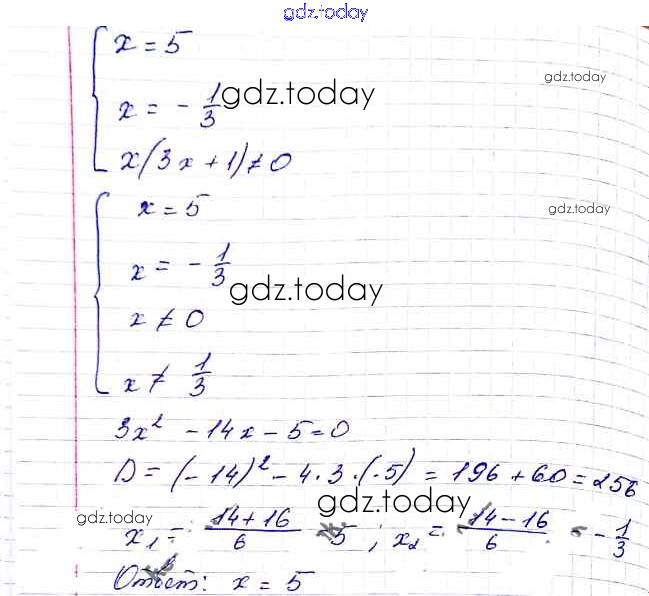 gdz.today
x = 5
gdz.today
x = - 1/3 gdz.today
x(3x+1) ≠ 0
x = 5
gdz.today
x = - 1/3
gdz.today
x ≠ 0
x ≠ 1/3
3x² - 14x - 5 = 0
D = (-14)² - 4·3·(-5) = 196 + 60 = 256
gdz.today
gdz.today
x₁ = (14+16)/6 = 5 ; x₂ = (14-16)/6 = - 1/3
Ответ: x = 5